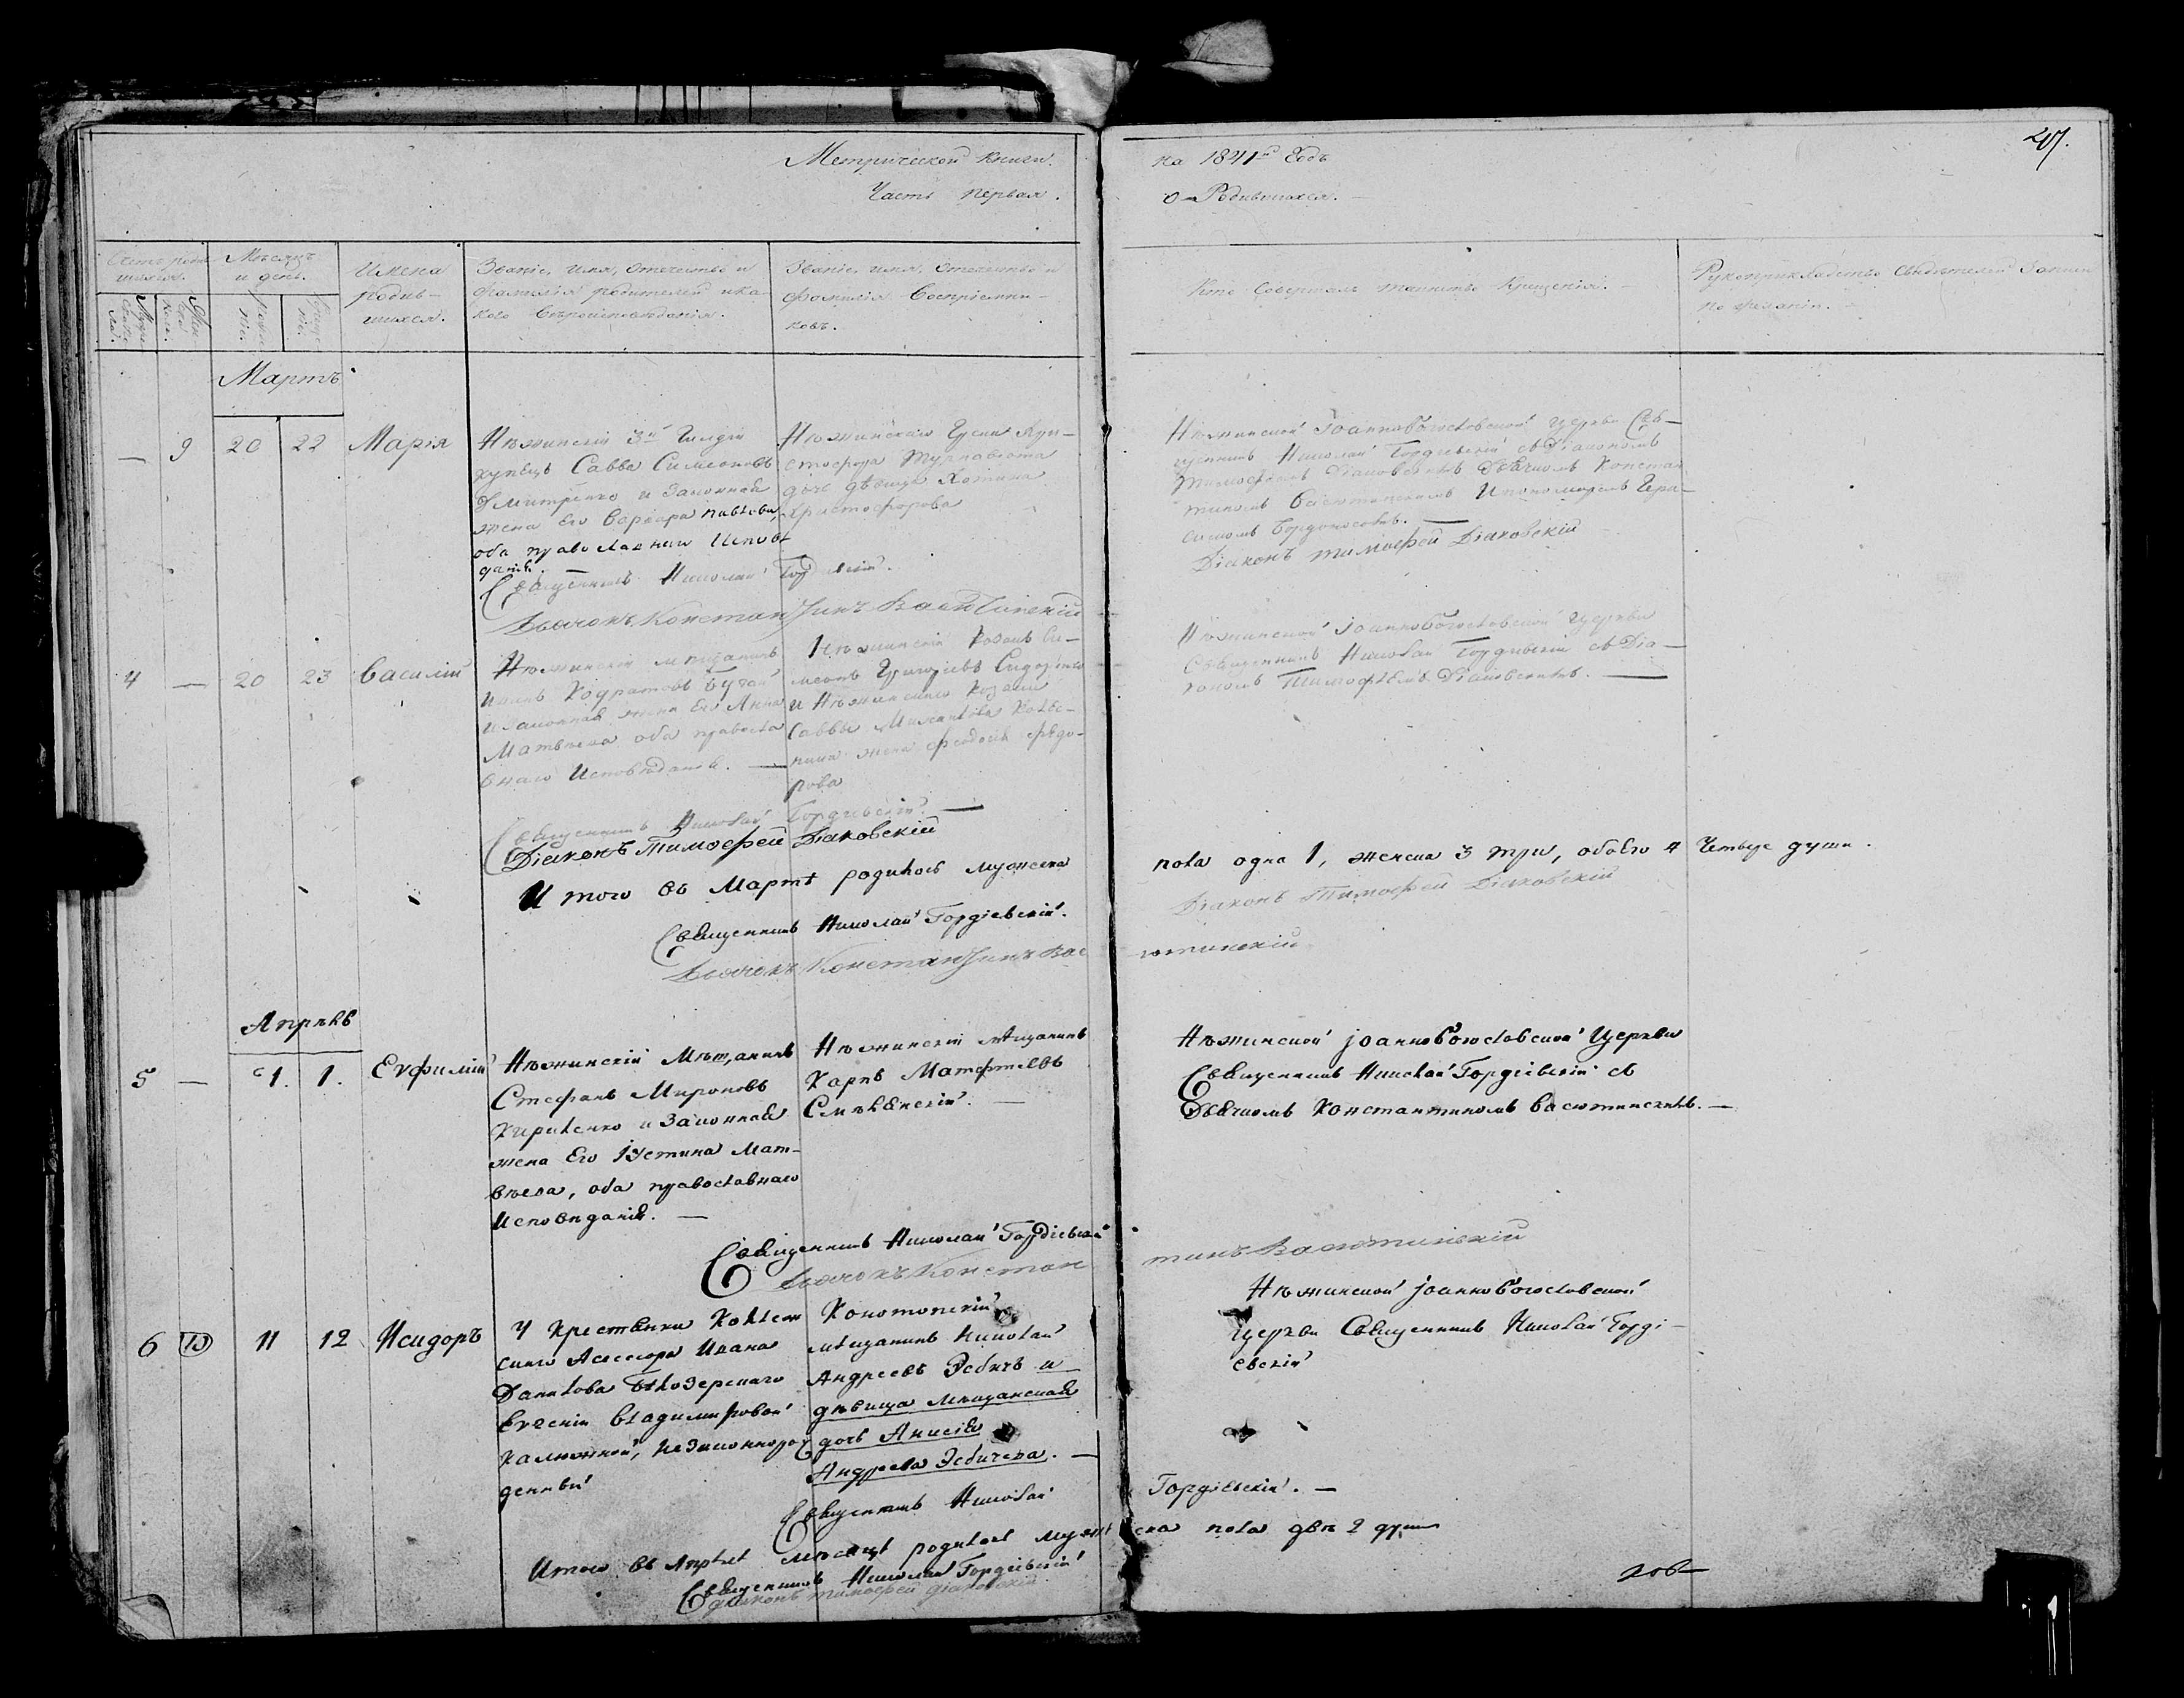 Метрической книги.
Часть первая.
на 1841й Годъ
о Родившихся.
207.
Счетъ родившихся.
Мѣсяцъ и день.
Имена родившихся.
Званіе, имя, отечество и
фамилія родителей и ка-
кого вѣроисповѣданія.
Званіе, имя, отечество и
фамилія воспріемни-
ковъ.
Кто совершалъ таинство крещенія.
Рукоприкладство свидѣтелей записи
по желанію.
Мартъ
— 9 20 22 Марія
Нѣжинскій 3й Гилдіи
купецъ Савва Симеоновъ
Дмитренко и законная
жена Его Варвара Павлова,
оба православнаго Исповѣ
данія.
Нѣжинскаго Грека Хри-
стофора
дочь дѣвица
Христофорова
Нѣжинской Іоаннобогословской церкви Свя-
щенникъ Николай Гордіевскій съ Діакономъ
Тимофеемъ Діаковскимъ Дьячкомъ Констан
тиномъ Васютинскимъ и пономаремъ Гера-
симомъ
Діаконъ Тимофей Діаковскій
Священникъ Николай Гордіевскій.
Дьячокъ Константинъ Васютинскій
4 — 20 23 Василій
Нѣжинскій мѣщанинъ
Кодратовъ Бугай
и законная жена Его Анна
Матвѣева оба правосла
внаго Исповѣданія. —
Нѣжинскій Козакъ Си-
меонъ Григоріевъ Сидоренко
и Нѣжинскаго Козака
Саввы
жена Феодосія Федо-
рова
Нѣжинской Іоаннобогословской церкви
Священникъ Николай Гордіевскій съ Діа-
кономъ Тимофѣемъ Діаковскимъ. —
Священникъ Николай Гордіевскій —
Діаконъ Тимофей Діаковскій
И того въ Мартѣ родилось мужеска
пола одна 1, женска 3 три, обоего 4 Четыре души.
Діаконъ Тимофей Діаковскій
Священникъ Николай Гордіевскій.
Дьячокъ Константинъ Вас
ютинскій
Апрѣль
5 — 1. 1. Евфимій
Нѣжинскій Мѣщанинъ
Стефанъ Мироновъ
Кириленко и Законная
жена Его Іустина Мат-
вѣева, оба православнаго
Исповѣданія. —
Нѣжинскій мѣщанинъ
Карпъ Матфѣевъ
Нѣжинской Іоаннобогословской Церкви
Священникъ Николай Гордіевскій съ
Дьячкомъ Константиномъ Васютинскимъ. —
Священникъ Николай Гордіевскій
Дьячокъ Констан
тинъ Васютинскій
6 10 11 12 Исидоръ
У Крестьянки Коллеж
скаго Асессора Ивана
Данилова Бѣлозерскаго
Евгеніи Владимировой
Калюжной, незаконнорож
денный
Конотопскій
мѣщанинъ Николай
Андреевъ Эсбичъ и
дѣвица мѣщанская
дочь Анисія
Андреева Эсбичева. —
Нѣжинской Іоаннобогословской
церкви Священникъ Николай Горді-
евскій
Священникъ Николай
Гордіевскій. —
Итого въ Апрѣлѣ мѣсяцѣ родилось муже
ска пола двѣ 2 души
Священникъ Николай Гордіевскій
Діаконъ Тимофей Діаковскій